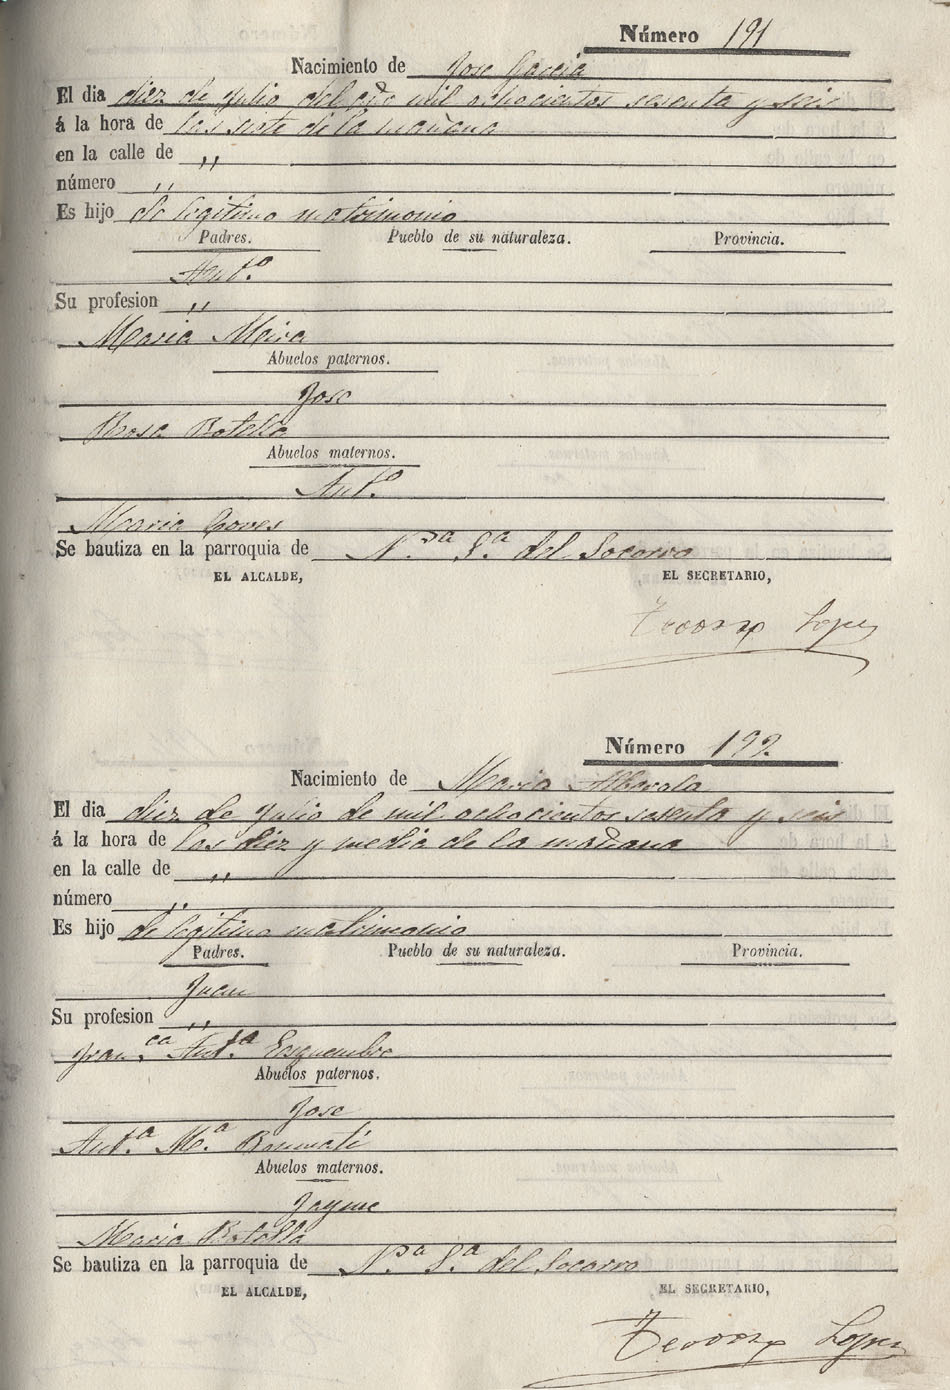 Número 191
Nacimiento de Jose Garcia
El dia diez de Julio del año mil ochocientos sesenta y seis
á la hora de las siete de la mañana
en la calle de ,,
número ,,
Es hijo de legitimo matrimonio
Padres. Pueblo de su naturaleza. Provincia.
Ant.º
Su profesion ,,
Maria Mira
Abuelos paternos.
Jose
Rosa Botella
Abuelos maternos.
Ant.º
Maria
Se bautiza en la parroquia de N.ra S.ª del Socorro
EL ALCALDE, EL SECRETARIO,
Lopez
Número 192.
Nacimiento de Maria Alberola
El dia diez de Julio de mil ochocientos sesenta y seis
á la hora de las diez y media de la mañana
en la calle de ,,
número ,,
Es hijo de legitimo matrimonio
Padres. Pueblo de su naturaleza. Provincia.
Juan
Su profesion ,,
Fran.ca Ant.ª Esquembre
Abuelos paternos.
Jose
Ant.ª M.ª Bonmati
Abuelos maternos.
Jayme
Maria Botella
Se bautiza en la parroquia de N.ra S.ª del Socorro
EL ALCALDE, EL SECRETARIO,
Lopez